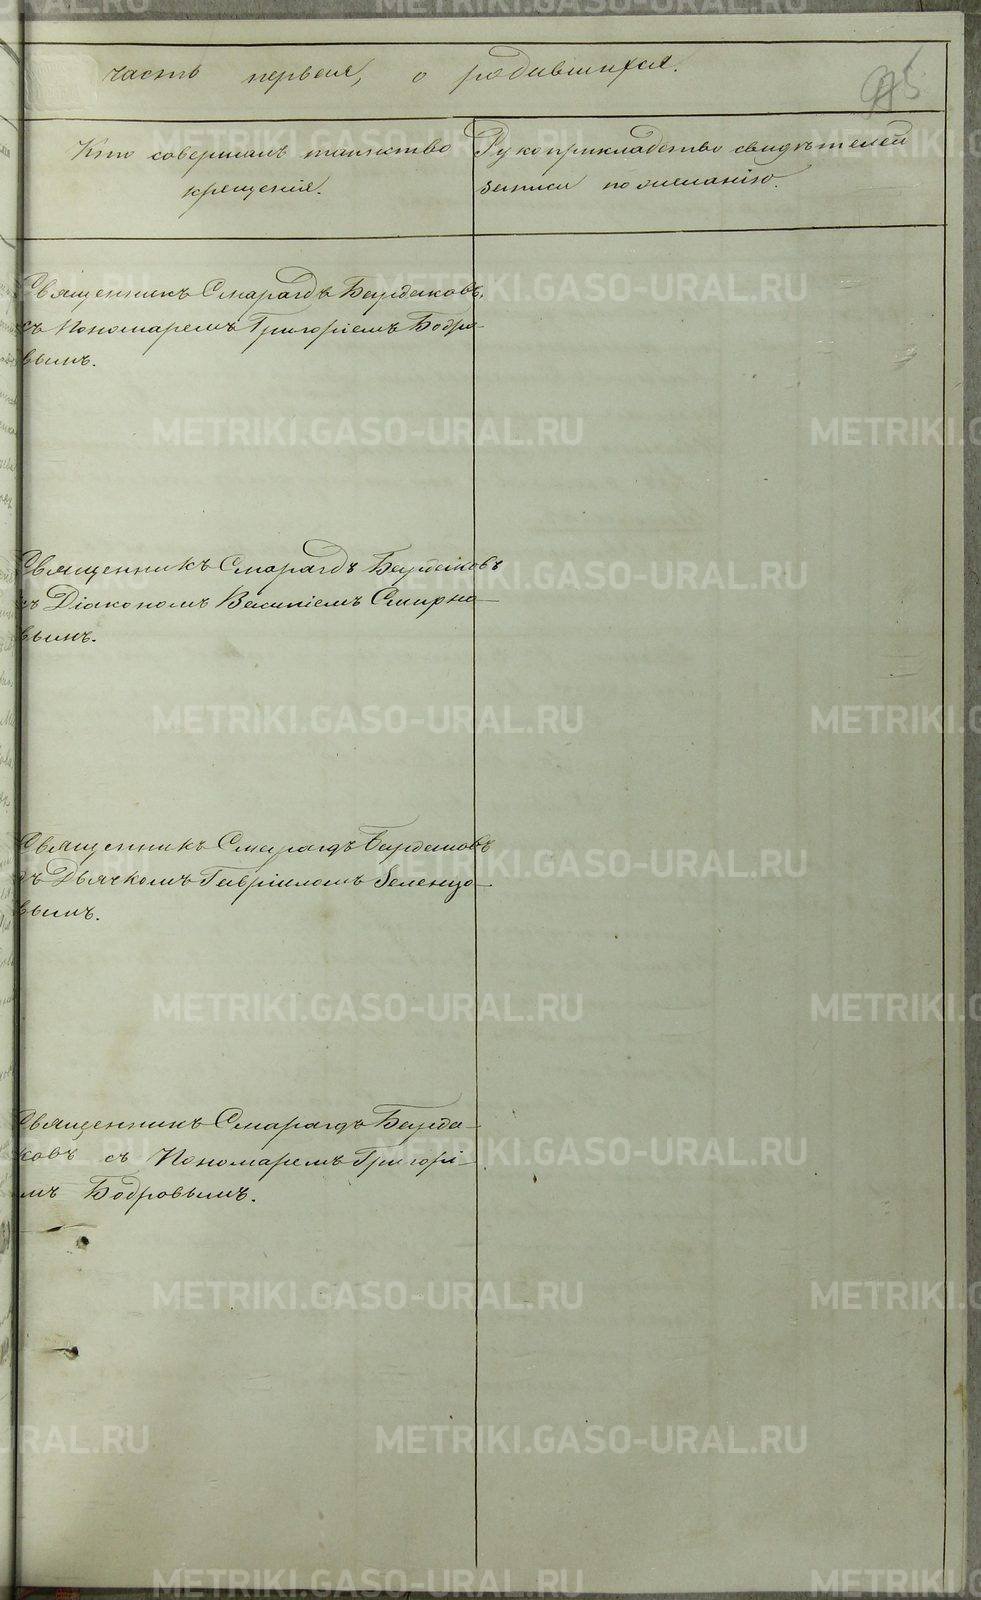 часть первая, о родившихся.
Кто совершалъ таинство
крещенія.
Рукоприкладство свидѣтелей
записи по желанію.
Священникъ Смарагдъ Бурдаковъ,
съ Пономаремъ Григоріемъ Бодро-
вымъ.
Священникъ Смарагдъ Бурдаковъ
съ Діакономъ Василіемъ Смирно-
вымъ.
Священникъ Смарагдъ Бурдаковъ
съ Дьячкомъ Гавріиломъ Зеленцо-
вымъ.
Священникъ Смарагдъ Бурда-
ковъ съ Пономаремъ Григорі-
мъ Бодровымъ.
METRIKI.GASO-URAL.RU